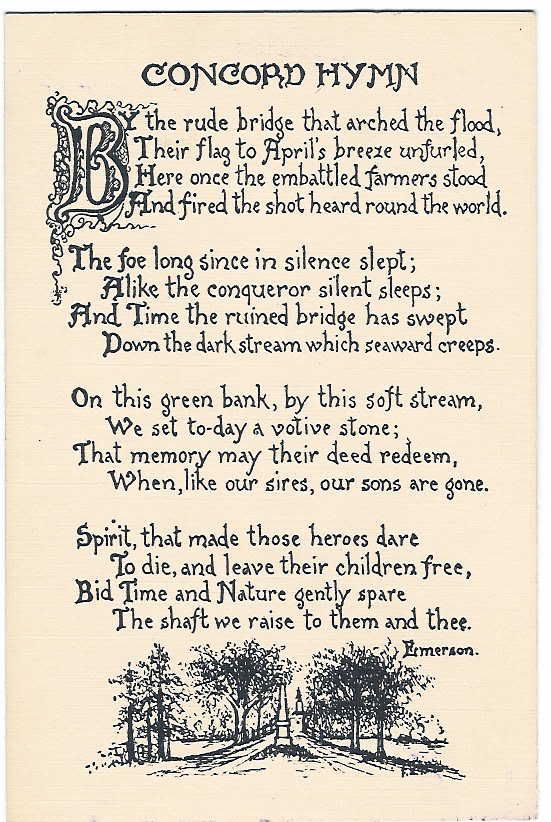 CONCORD HYMN
BY the rude bridge that arched the flood,
Their flag to April's breeze unfurled,
Here once the embattled farmers stood
And fired the shot heard round the world.
The foe long since in silence slept;
Alike the conqueror silent sleeps;
And Time the ruined bridge has swept
Down the dark stream which seaward creeps.
On this green bank, by this soft stream,
We set to-day a votive stone;
That memory may their deed redeem,
When, like our sires, our sons are gone.
Spirit, that made those heroes dare
To die, and leave their children free,
Bid Time and Nature gently spare
The shaft we raise to them and thee.
Emerson.